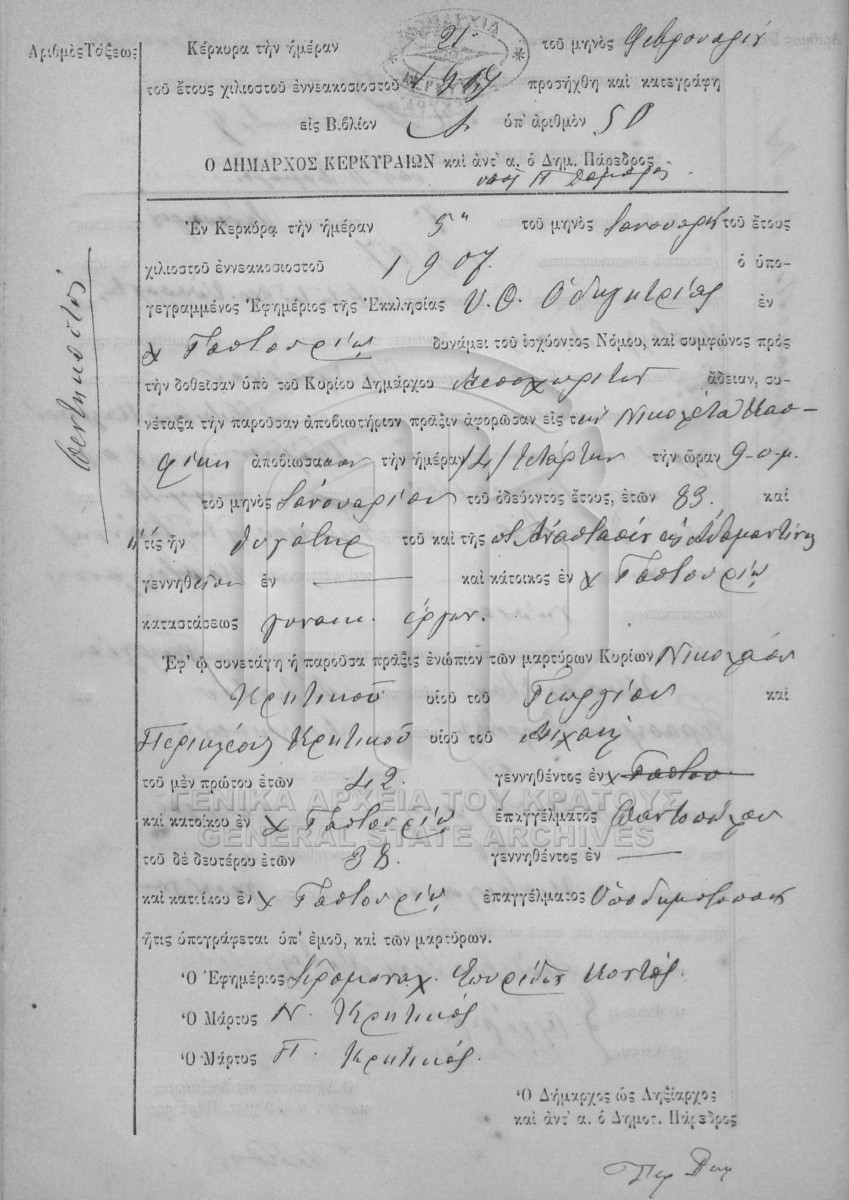 Ἀριθμὸς Τάξεως
Κέρκυρα τὴν ἡμέραν 21 τοῦ μηνὸς Φεβρουαρίου
τοῦ ἔτους χιλιοστοῦ ἐννεακοσιοστοῦ 1907 προσήχθη καὶ κατεγράφη
εἰς Βιβλίον Α ὑπ' ἀριθμὸν 50
Ὁ ΔΗΜΑΡΧΟΣ ΚΕΡΚΥΡΑΙΩΝ καὶ ἀντ' α. ὁ Δημ. Πάρεδρος
Ἐν Κερκύρᾳ τὴν ἡμέραν 5 τοῦ μηνὸς Ἰανουαρίου τοῦ ἔτους
χιλιοστοῦ ἐννεακοσιοστοῦ 1907. ὁ ὑπο-
γεγραμμένος Ἐφημέριος τῆς Ἐκκλησίας Υ. Θ. Ὁδηγητρίας ἐν
χ Γαστουρίῳ δυνάμει τοῦ ἰσχύοντος Νόμου, καὶ συμφώνως πρὸς
τὴν δοθεῖσαν ὑπὸ τοῦ Κυρίου Δημάρχου ἄδειαν, συ-
νέταξα τὴν παροῦσαν ἀποβιωτήριον πρᾶξιν ἀφορῶσαν εἰς τὴν Νικολέτα
ἀποβιώσασαν τὴν ἡμέραν /4/ Τετάρτην τὴν ὥραν 9 π.μ.
τοῦ μηνὸς Ἰανουαρίου τοῦ ὁδεύοντος ἔτους, ἐτῶν 83. καὶ
ἥτις ἦν θυγάτηρ τοῦ καὶ τῆς π Ἀναστασίου καὶ Ἀδαμαντίνης
γεννηθεῖσα ἐν — καὶ κάτοικος ἐν χ Γαστουρίῳ
καταστάσεως γυναικ. ἔργων.
Ἐφ' ᾧ συνετάγη ἡ παροῦσα πρᾶξις ἐνώπιον τῶν μαρτύρων Κυρίων Νικολάου
Κρητικοῦ υἱοῦ τοῦ Γεωργίου καὶ
Περικλέους Κρητικοῦ υἱοῦ τοῦ Μιχαὴλ
τοῦ μὲν πρώτου ἐτῶν 42. γεννηθέντος ἐν χ Γαστου
καὶ κατοίκου ἐν χ Γαστουρίῳ ἐπαγγέλματος Παντοπώλου
τοῦ δὲ δευτέρου ἐτῶν 38. γεννηθέντος ἐν —
καὶ κατοίκου ἐν χ Γαστουρίῳ ἐπαγγέλματος Ὑποδηματοποιοῦ
ἥτις ὑπογράφεται ὑπ' ἐμοῦ, καὶ τῶν μαρτύρων.
Ὁ Ἐφημέριος Ἱερομοναχ. Σπυρίδων Κοντὸς.
Ὁ Μάρτυς Ν. Κρητικὸς
Ὁ Μάρτυς Π. Κρητικὸς.
Ὁ Δήμαρχος ὡς Ληξίαρχος
καὶ ἀντ' α. ὁ Δημοτ. Πάρεδρος
ΓΕΝΙΚΑ ΑΡΧΕΙΑ ΤΟΥ ΚΡΑΤΟΥΣ
GENERAL STATE ARCHIVES